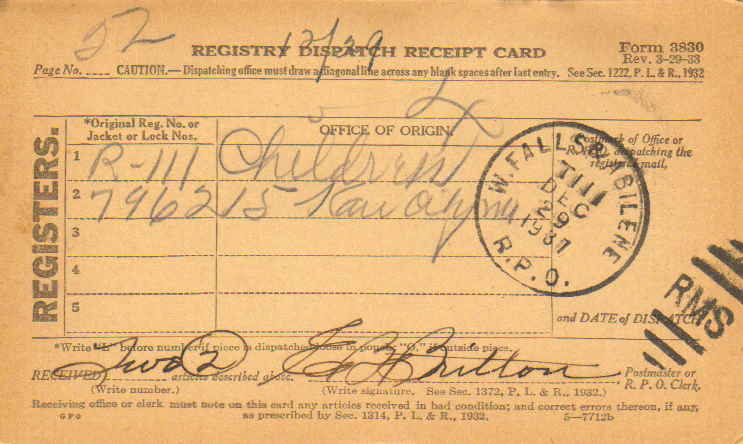 52
12/29
REGISTRY DISPATCH RECEIPT CARD
Form 3830
Rev. 3-29-33
Page No. CAUTION.—Dispatching office must draw a diagonal line across any blank spaces after last entry. See Sec. 1222, P. L. & R., 1932
REGISTERS.
*Original Reg. No. or
Jacket or Lock Nos.
OFFICE OF ORIGIN.
Postmark of Office or
R. P. O. dispatching the
registered mail,
1 R-111 Childress
2 796215
3
4
5
W. FALLS & ABILENE
TIII
DEC
29
1937
R.P.O.
RMS
and DATE of DISPATCH
*Write "L" before number if piece is dispatched loose in pouch; "O," if outside piece.
RECEIVED Two 2 articles described above. Britton
Postmaster or
R. P. O. Clerk.
(Write number.) (Write signature. See Sec. 1372, P. L. & R., 1932.)
Receiving office or clerk must note on this card any articles received in bad condition; and correct errors thereon, if any,
as prescribed by Sec. 1314, P. L. & R., 1932.
GPO
5—7712b